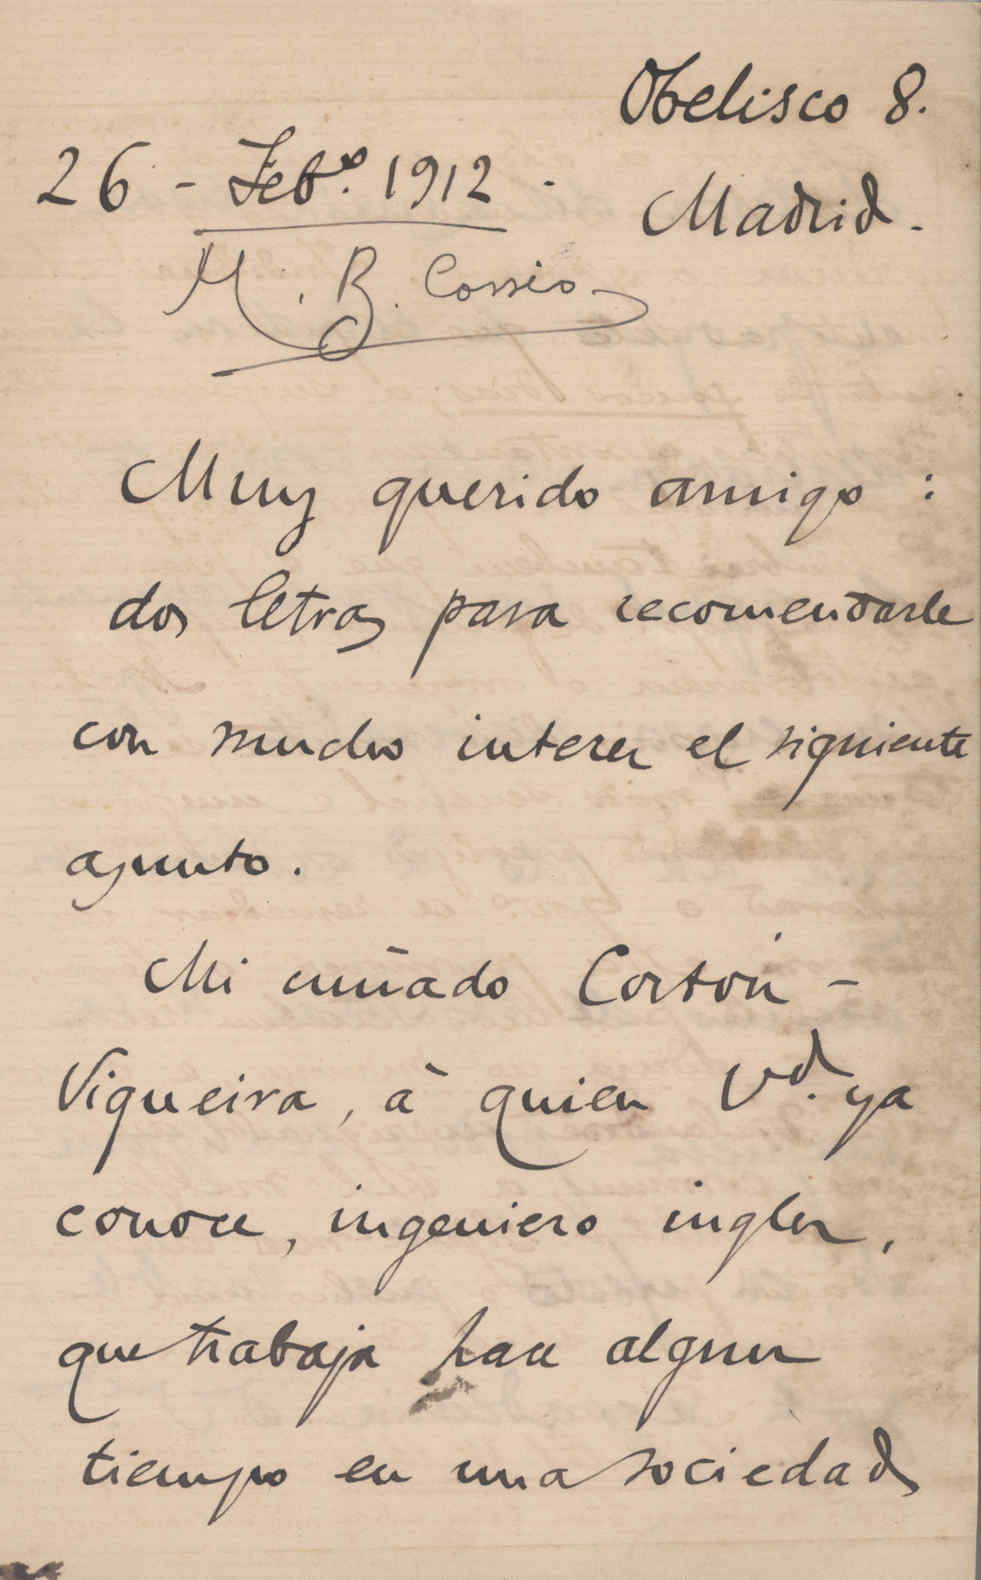 Obelisco 8.
26 - Febº. 1912 -
Madrid.
M. B. Cossio
Muy querido amigo :
dos letras para recomendarle
con mucho interes el siguiente
asunto.
Mi cuñado Cortón -
Viqueira, à quien Vd. ya
conoce, ingeniero ingles,
que trabaja hace algun
tiempo en una sociedad